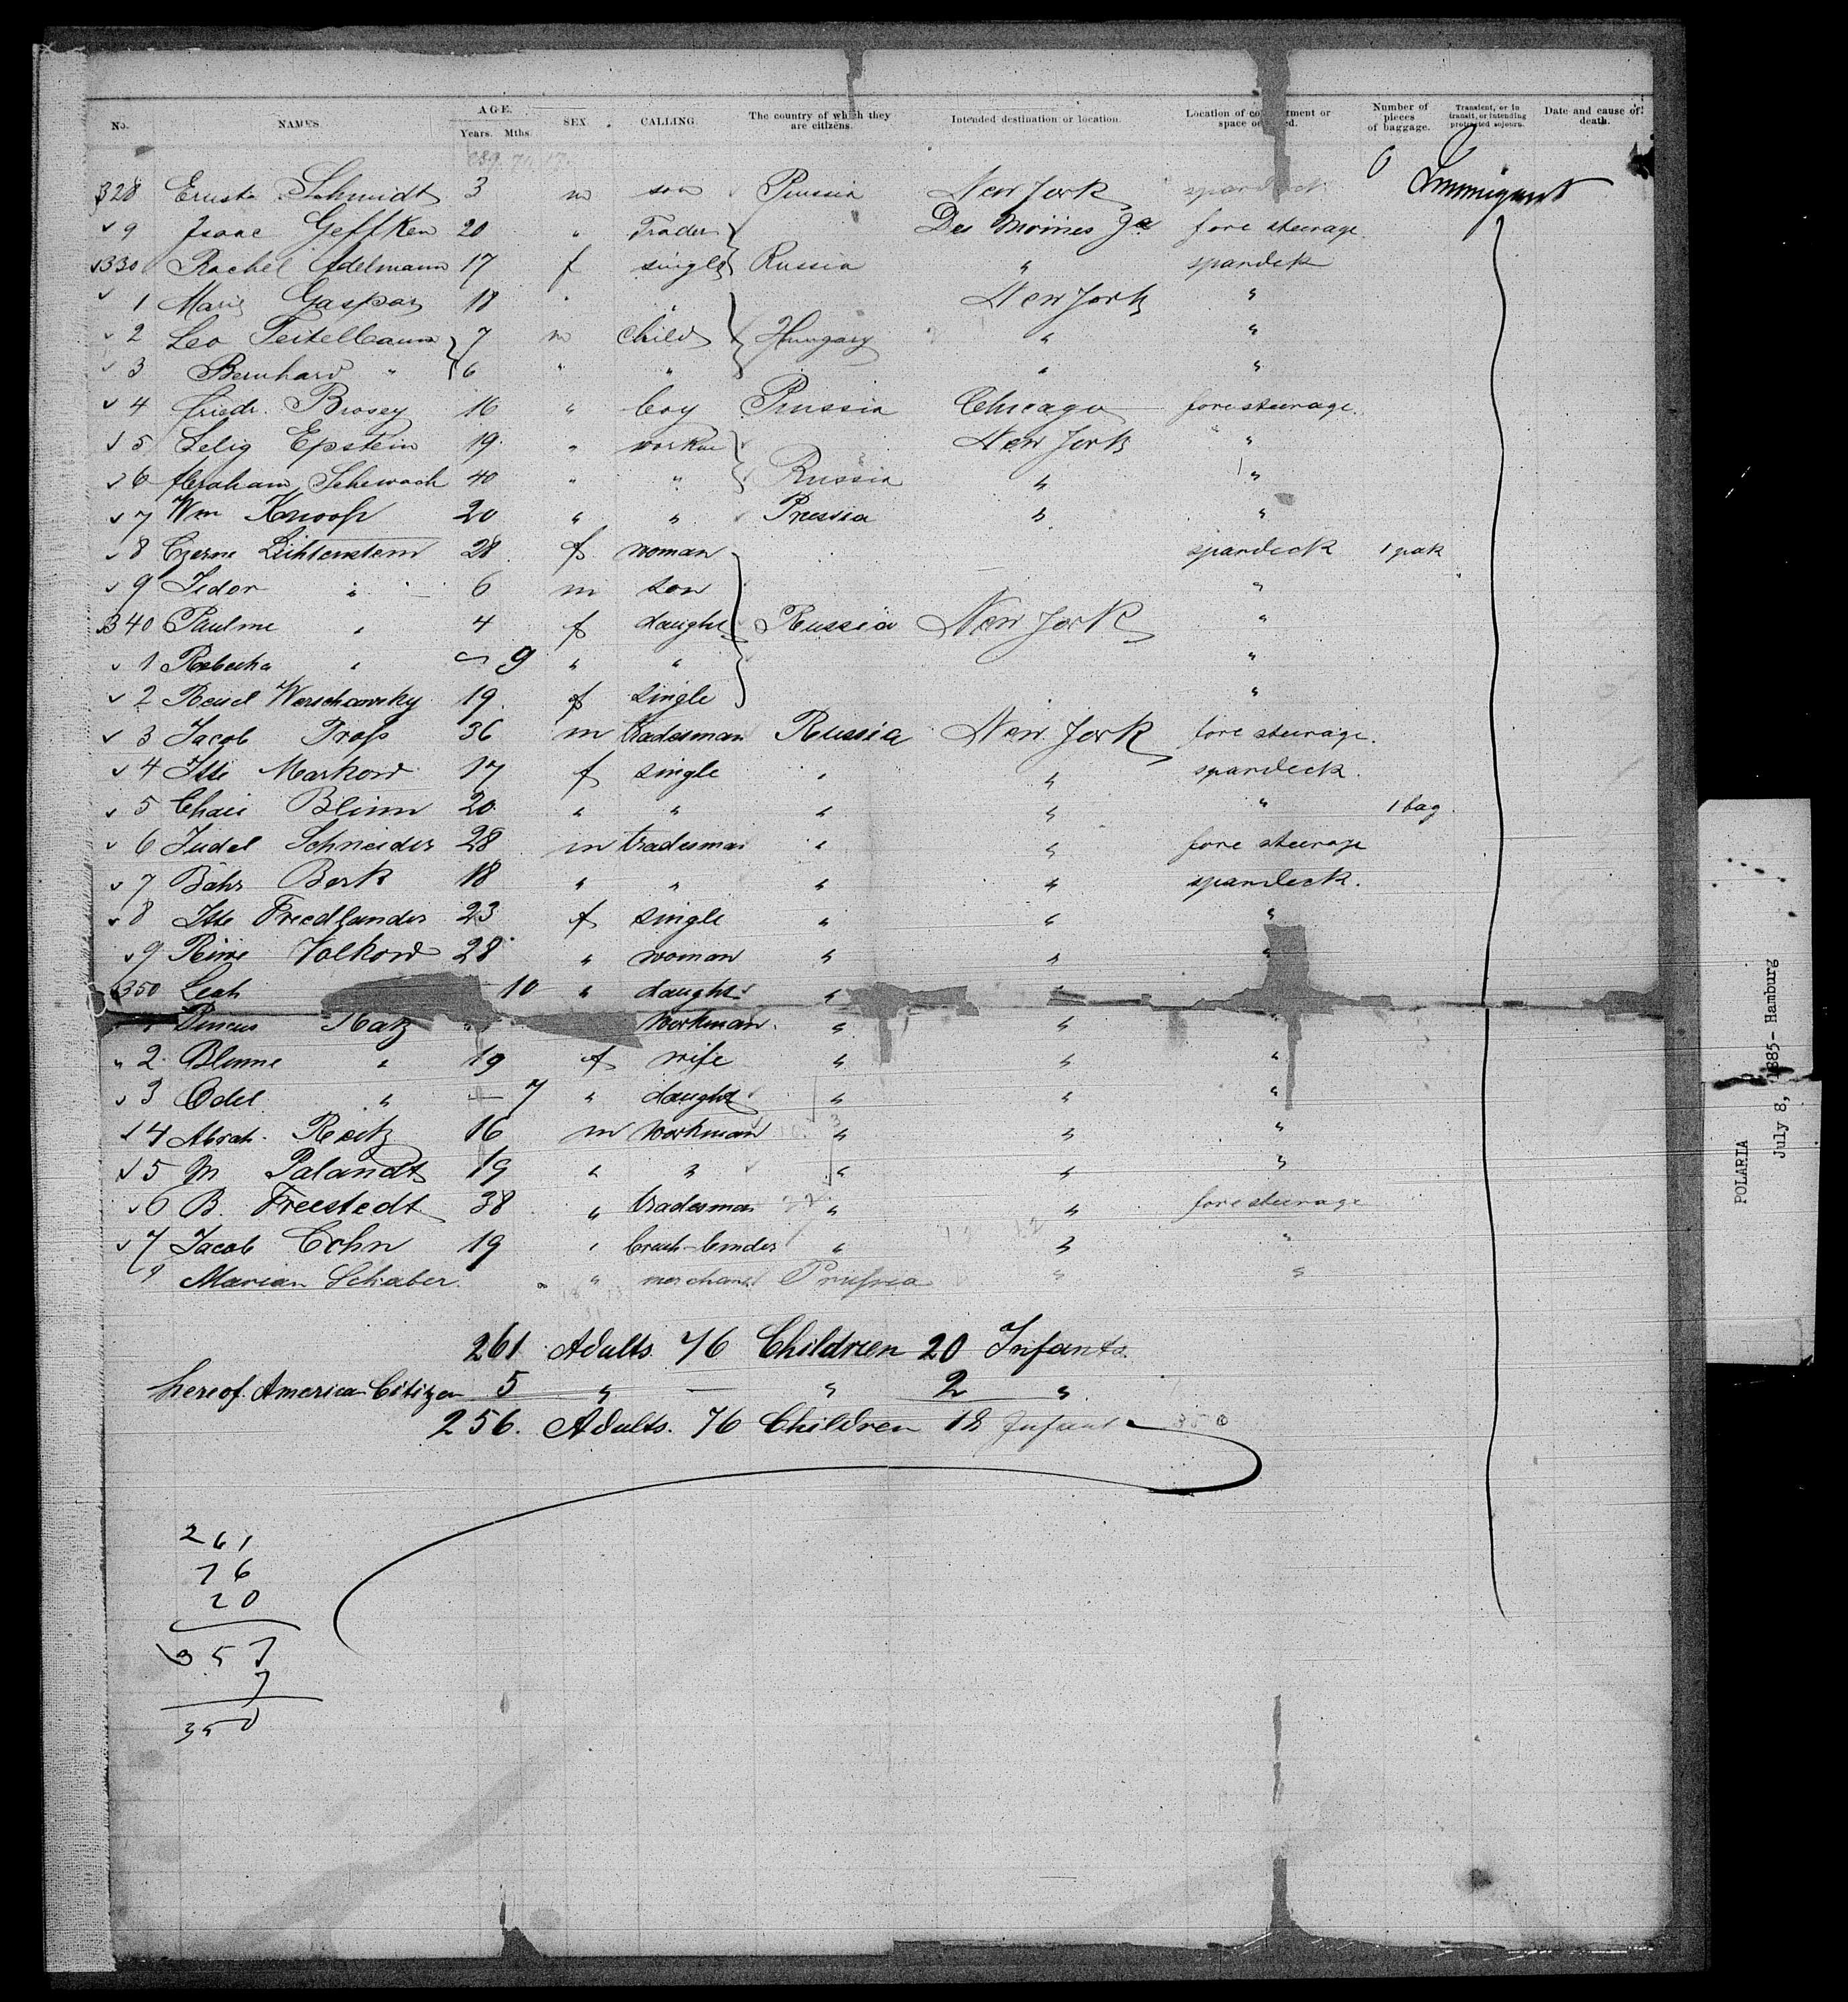 No. NAMES. AGE. Years. Mths. SEX. CALLING. The country of which they are citizens. Intended destination or location. Location of compartment or space occupied. Number of pieces of baggage. Transient, or in transit, or intending protracted sojourn. Date and cause of death.
328 Ernst Schmidt 3 m son Prussia New York spardeck Immigrant
9 Isaac Geffken 20 " Trader Des Moines Ja fore steerage
330 Rachel Adelmann 17 f single Russia " spardek
1 Marie Gaspar 18 " " New York "
2 Leo Teitelbaum 7 m child Hungary " "
3 Bernhard " 6 " " " "
4 Friedr. Brosey 16 " boy Prussia Chicago fore steerage.
5 Selig Epstein 19 " New York "
6 Abraham Schewach 40 " " Russia " "
7 Wm Knoop 20 " " Prussia " "
8 Lichtenstein 28 f woman spardeck 1 pak
9 Isidor " 6 m son "
340 Pauline " 4 f daught Russia New York "
1 Rebecka " 9 " " "
2 Warschawsky 19 f single "
3 Jacob Trop 36 m tradesman Russia New York fore steerage.
4 Itte Markow 17 f single " " spardeck.
5 Chaie Blinn 20 " " " " " 1 bag
6 Judel Schneider 28 m tradesman " " fore steerage
7 Bähr Berk 18 " " " " spardeck.
8 Itte Freedlander 23 f single " " "
9 Volkow 28 " woman " " "
350 Leah 10 " daught " "
1 Pincus Katz workman. " " "
2 Blume " 19 f wife " " "
3 Odel " 7 " daught " " "
4 Abrah. Reitz 16 m workman " " "
5 M Palandt 19 " " " " "
6 B. Freestedt 38 " tradesman " " fore steerage
7 Jacob Cohn 19 " brush-binder " " "
Marian Schaber " merchant Prussia " "
261 Adults. 76 Children 20 Infants.
hereof American Citizen 5 " — " 2 "
256. Adults. 76 Children 18 Infant 350
261
76
20
357
7
350
POLARIA
July 8, 1885- Hamburg